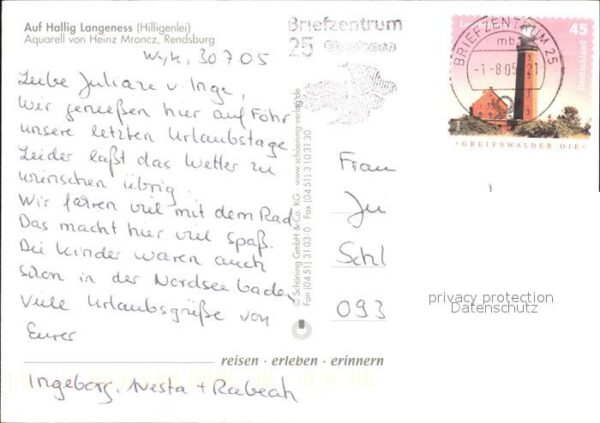 Auf Hallig Langeness (Hilligenlei)
Aquarell von Heinz Mroncz, Rendsburg
Wyk, 30.7.05
Liebe Juliane u. Inge,
Wir genießen hier auf Föhr
unsere letzten Urlaubstage.
Leider läßt das Wetter zu
wünschen übrig.
Wir fahren viel mit dem Rad.
Das macht hier viel Spaß.
Die Kinder waren auch
schon in der Nordsee baden.
Viele Urlaubsgrüße von
Eurer
Ingeborg, Nesta + Rabeah
reisen · erleben · erinnern
© Schöning GmbH & Co. KG · www.schoening-verlag.de
Fon (04 51) 3 10 3-0 · Fax (04 51) 3 10 31 30
Briefzentrum
25
BRIEFZENTRUM 25
mb
-1-8.05-21
45
Deutschland
·GREIFSWALDER OIE·
Frau
Ju
Schl
093
privacy protection
Datenschutz